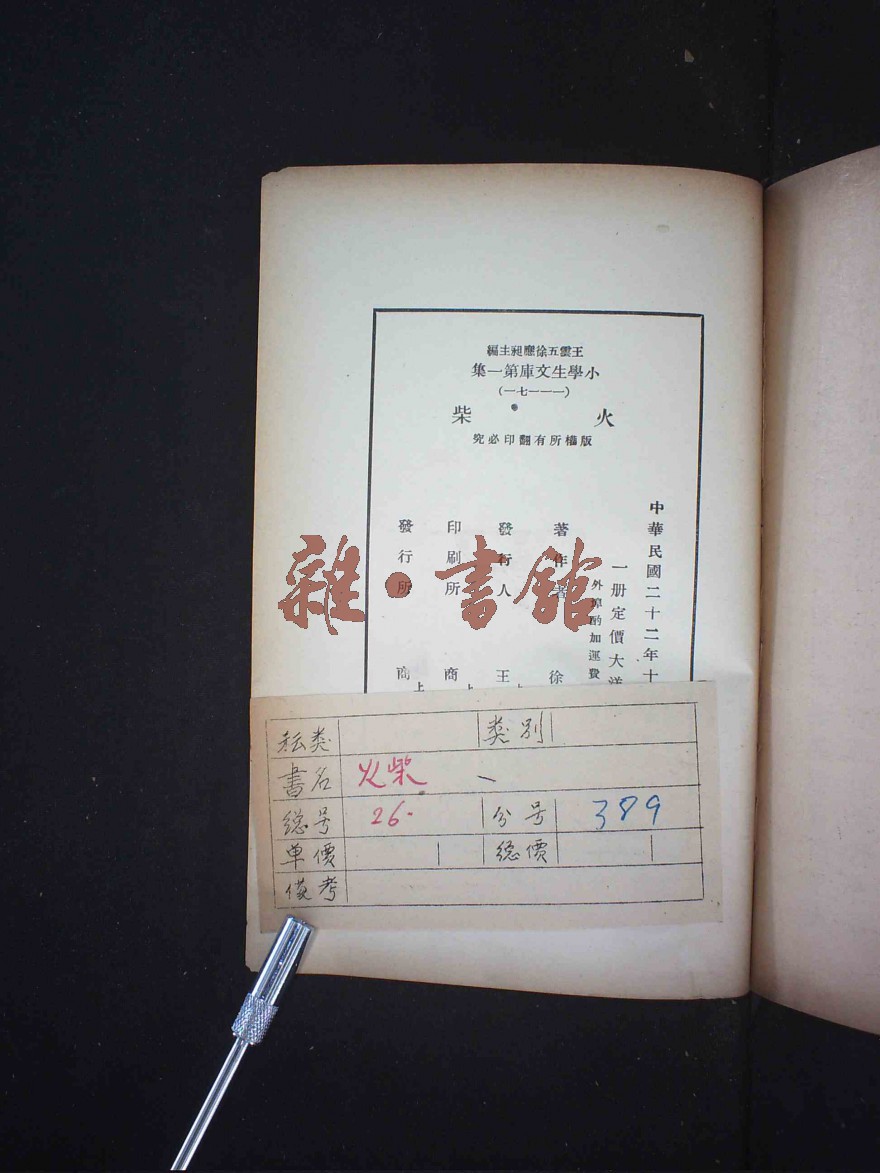 王雲五徐應昶主編
小學生文庫第一集
(一一一七一)
火柴
版權所有翻印必究
中華民國二十二年十
一册定價大洋
外埠酌加運費
著作者 徐
發行人 王
印刷所 商
上
發行所 商
上
雜·書館
类别
書名 火柴
総号 26. 分号 389
单價 総價
俻考